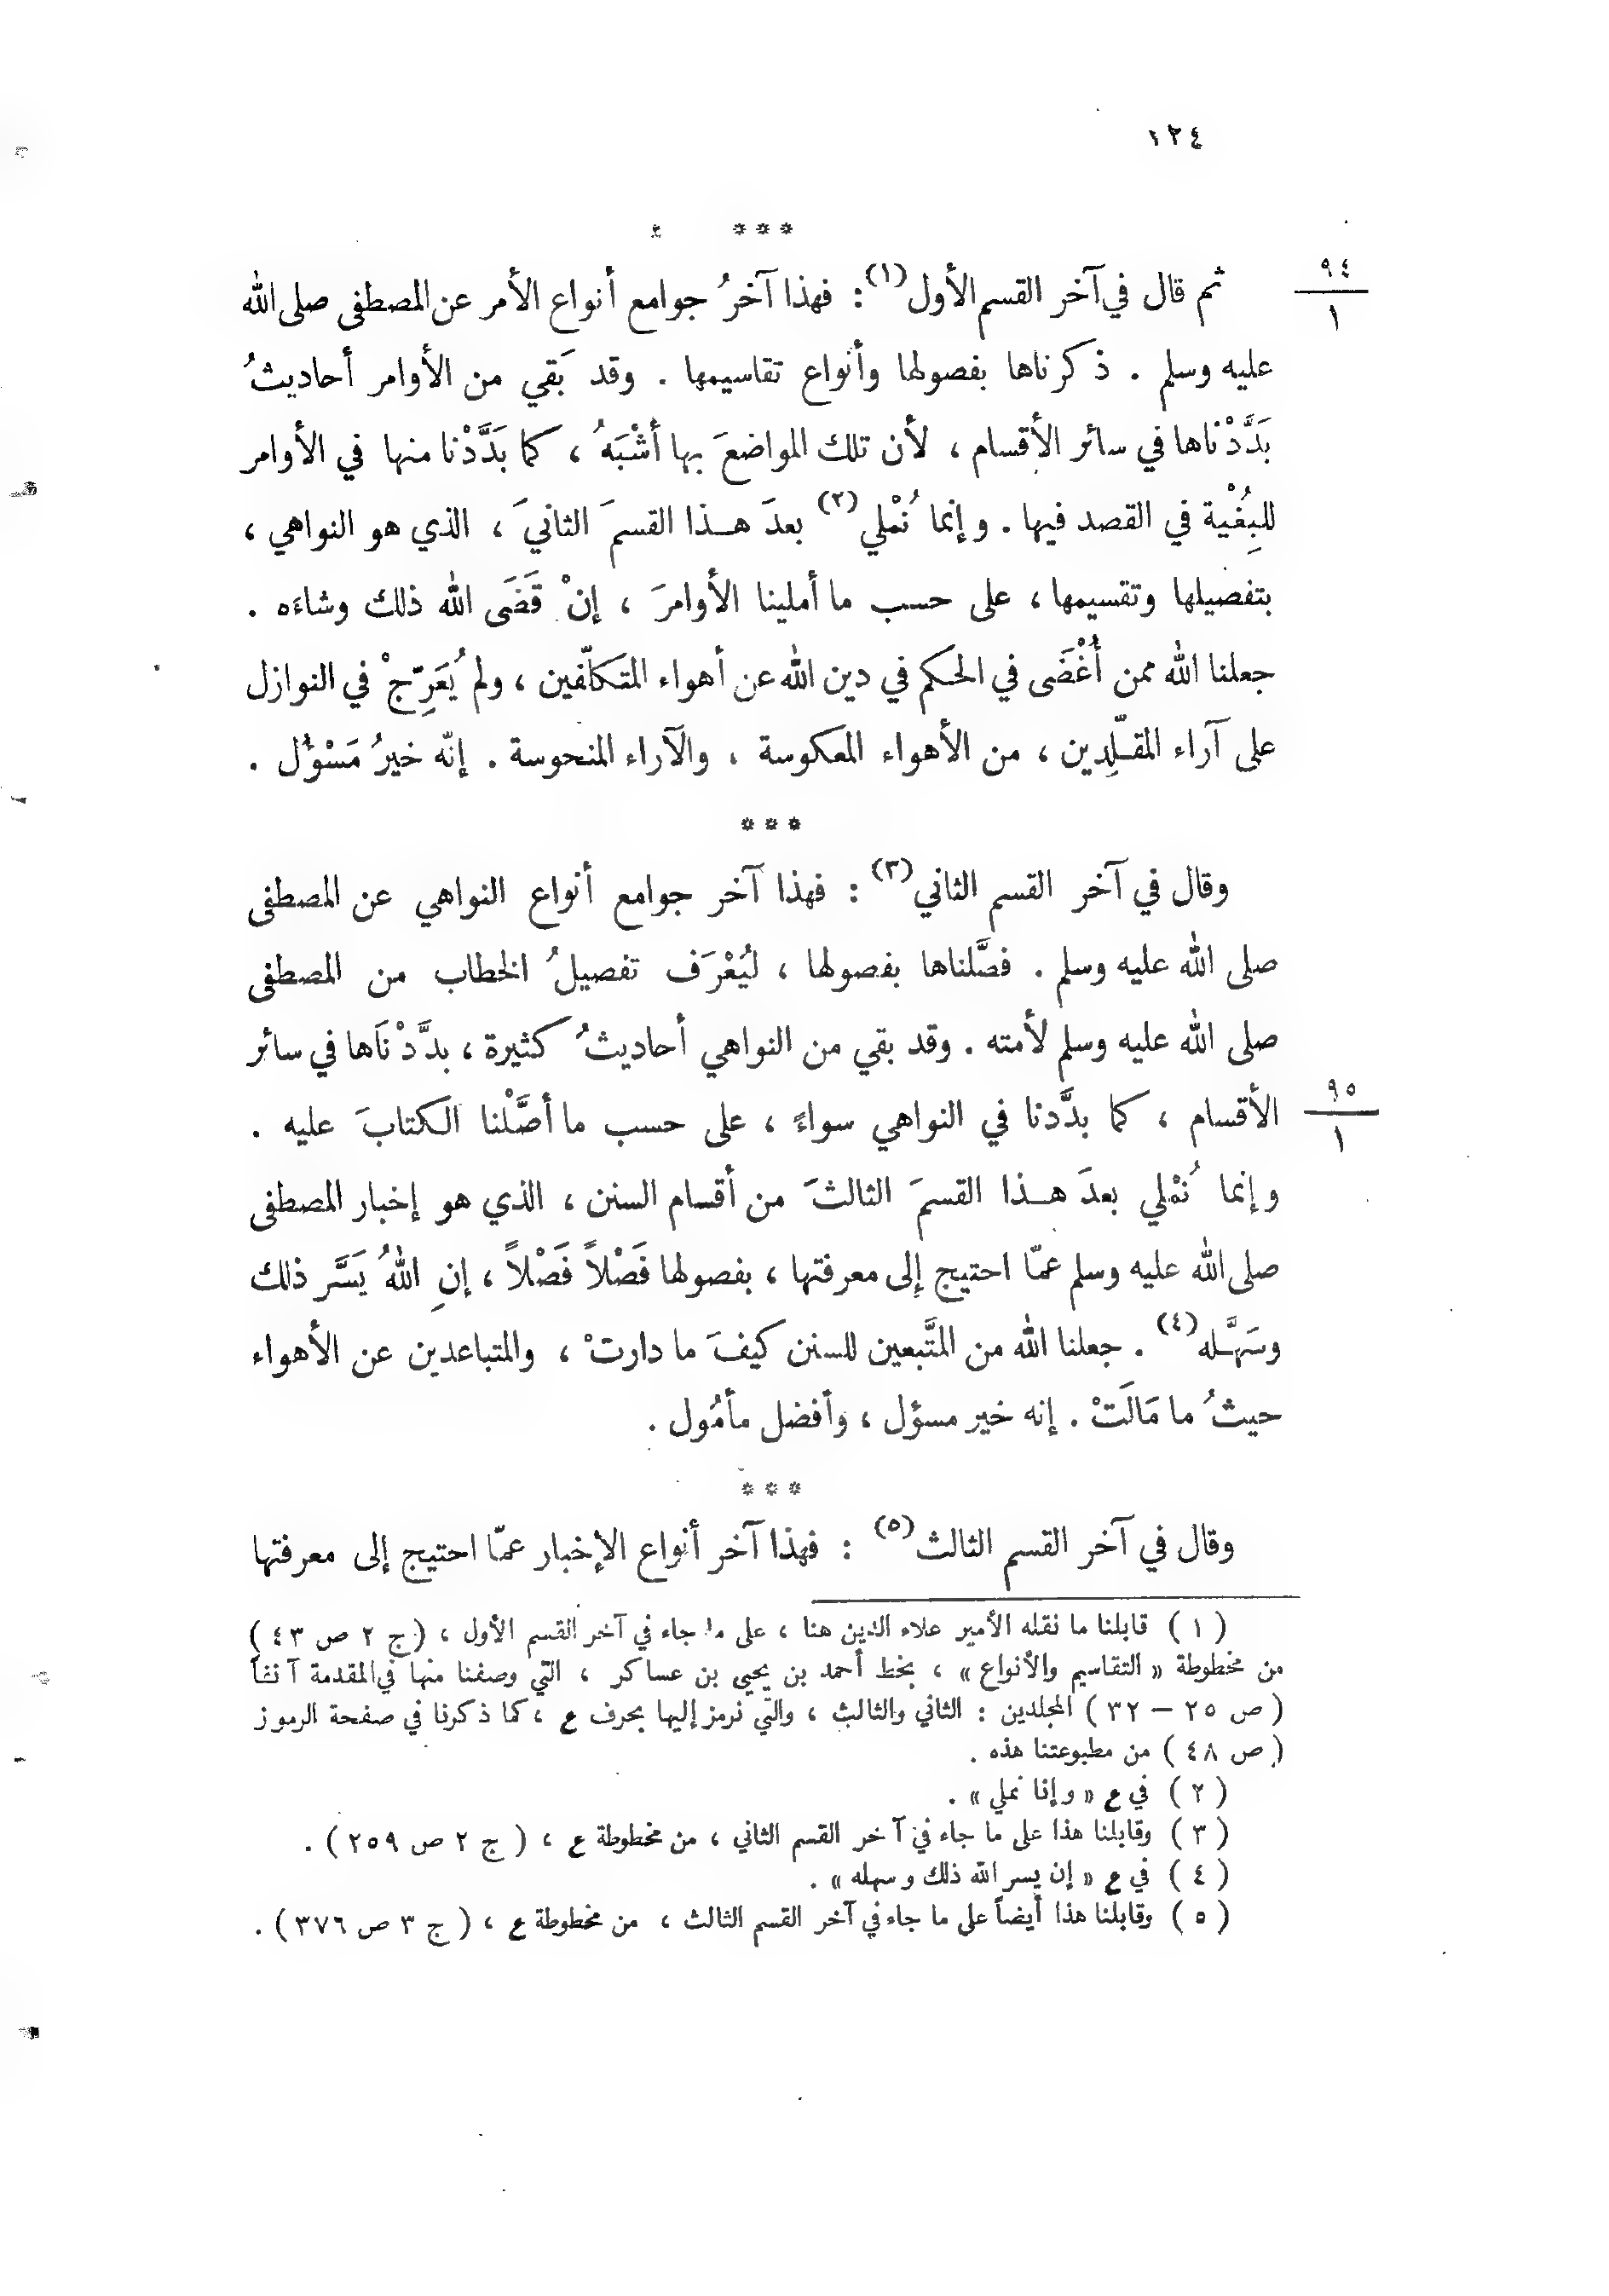 ١٢٤
* * *
٩٤
١
ثم قال في آخر القسم الأول (١) : فهذا آخرُ جوامع أنواع الأمر عن المصطفى صلى الله
عليه وسلم . ذكرناها بفصولها وأنواع تقاسيمها . وقد بَقي من الأوامر أحاديثُ
بَدَّدْناها في سائر الأقسام ، لأن تلك المواضعَ بها أشْبَهُ ، كما بَدَّدْنا منها في الأوامر
للبِغُيْة في القصد فيها . وإنما نُمْلي (٢) بعدَ هـذا القسمَ الثانيَ ، الذي هو النواهي ،
بتفصيلها وتقسيمها ، على حسب ما أملينا الأوامرَ ، إنْ قَضَى الله ذلك وشاءَه .
جعلنا الله ممن أُغْضَى في الحكم في دين الله عن أهواء المتكلّفين ، ولم يُعَرِّجْ في النوازل
على آراء المقـلّدِين ، من الأهواء المعكوسة ، والآراء المنحوسة . إنّه خيرُ مَسْؤُل .
* * *
وقال في آخر القسم الثاني (٣) : فهذا آخر جوامع أنواع النواهي عن المصطفى
صلى الله عليه وسلم . فصَّلناها بفصولها ، ليُعْرَف تفصيلُ الخطاب من المصطفى
صلى الله عليه وسلم لأمته . وقد بقي من النواهي أحاديثُ كثيرة ، بدَّدْنَاها في سائر
٩٥
١
الأقسام ، كما بدَّدنا في النواهي سواءً ، على حسب ما أصَّلْنا الكتابَ عليه .
وإنما نُمْلي بعدَ هـذا القسمَ الثالثَ من أقسام السنن ، الذي هو إخبار المصطفى
صلى الله عليه وسلم عمّا احتيج إلى معرفتها ، بفصولها فَصْلاً فَصْلاً ، إنِ اللهُ يَسَّر ذلك
وسَهَّـله (٤) . جعلنا الله من المتَّبعين للسنن كيفَ ما دارتْ ، والمتباعدين عن الأهواء
حيثُ ما مَالَتْ . إنه خير مسؤل ، وأفضل مأمُول .
* * *
وقال في آخر القسم الثالث (٥) : فهذا آخر أنواع الإخبار عمّا احتيج إلى معرفتها
( ١ ) قابلنا ما نقله الأمير علاء الدين هنا ، على ما جاء في آخر القسم الأول ، ( ج ٢ ص ٤٣ )
من مخطوطة « التقاسيم والأنواع » ، بخط أحمد بن يحيى بن عساكر ، التي وصفنا منها في المقدمة آنفاً
( ص ٢٥ – ٣٢ ) المجلدين : الثاني والثالث ، والتي نرمز إليها بحرف ع ، كما ذكرنا في صفحة الرموز
( ص ٤٨ ) من مطبوعتنا هذه .
( ٢ ) في ع « وإنا نملي » .
( ٣ ) وقابلنا هذا على ما جاء في آخر القسم الثاني ، من مخطوطة ع ، ( ج ٢ ص ٢٥٩ ) .
( ٤ ) في ع « إن يسر الله ذلك وسهله » .
( ٥ ) وقابلنا هذا أيضاً على ما جاء في آخر القسم الثالث ، من مخطوطة ع ، ( ج ٣ ص ٣٧٦ ) .